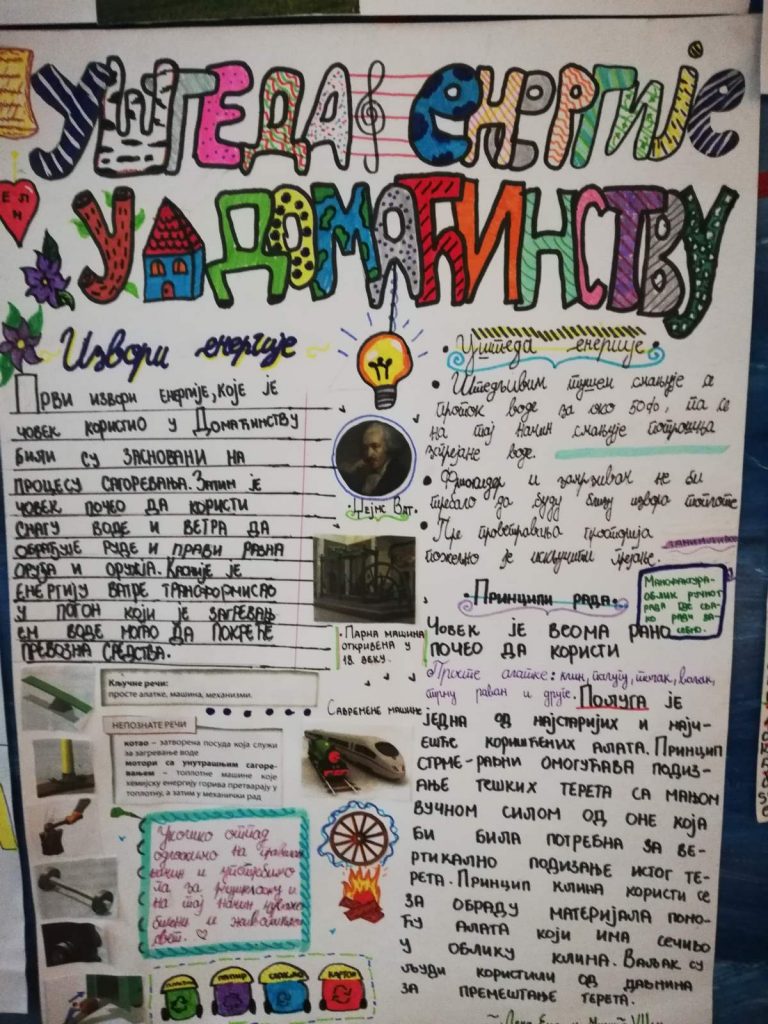 Уштеда енергије
у домаћинству
Извори енергије
Први извори енергије, које је
човек користио у Домаћинству
били су засновани на
процесу сагоревања. Затим је
човек почео да користи
снагу воде и ветра да
обрађује руде и прави разна
оруђа и оружја. Касније је
енергију ватре трансформисао
у погон који је загревањ
ем воде могао да покреће
превозна средства.
Кључне речи:
просте алатке, машина, механизми.
НЕПОЗНАТЕ РЕЧИ
котао – затворена посуда која служи
за загревање воде
мотори са унутрашњим сагоре-
вањем – топлотне машине које
хемијску енергију горива претварају у
топлотну, а затим у механички рад
Уколико отпад
одложимо на правилан
начин и употребимо
га за рециклажу и
на тај начин чувамо
биљни и животињски
свет.
Џејмс Ват.
Парна машина
откривена у
18. веку.
Савремене машине
папир
карton
Уштеда енергије
Штедљивим тушем смањује се
проток воде за око 50%, па се
на тај начин смањује потрошња
загрејане воде.
Фрижидер и замрзивач не би
требало да буду близу извора топлоте
Пре проветравања просторија
пожељно је искључити грејање.
Занимљивост
Мануфактура-
облик ручног
рада где сва-
ко ради за-
себно.
Принципи рада
Човек је веома рано
почео да користи
Просте алатке: клин, полугу, точак, ваљак,
стрму раван и друге. Полуга је
једна од најстаријих и најч-
ешће коришћених алата. Принцип
стрме-равни омогућава подиз-
ање тешких терета са мањом
вучном силом од оне која
би била потребна за ве-
ртикално подизање истог те-
рета. Принцип клина користи се
за обраду материјала помо-
ћу алата који има сечиво
у облику клина. Ваљак су
људи користили од давнина
за премештање терета.